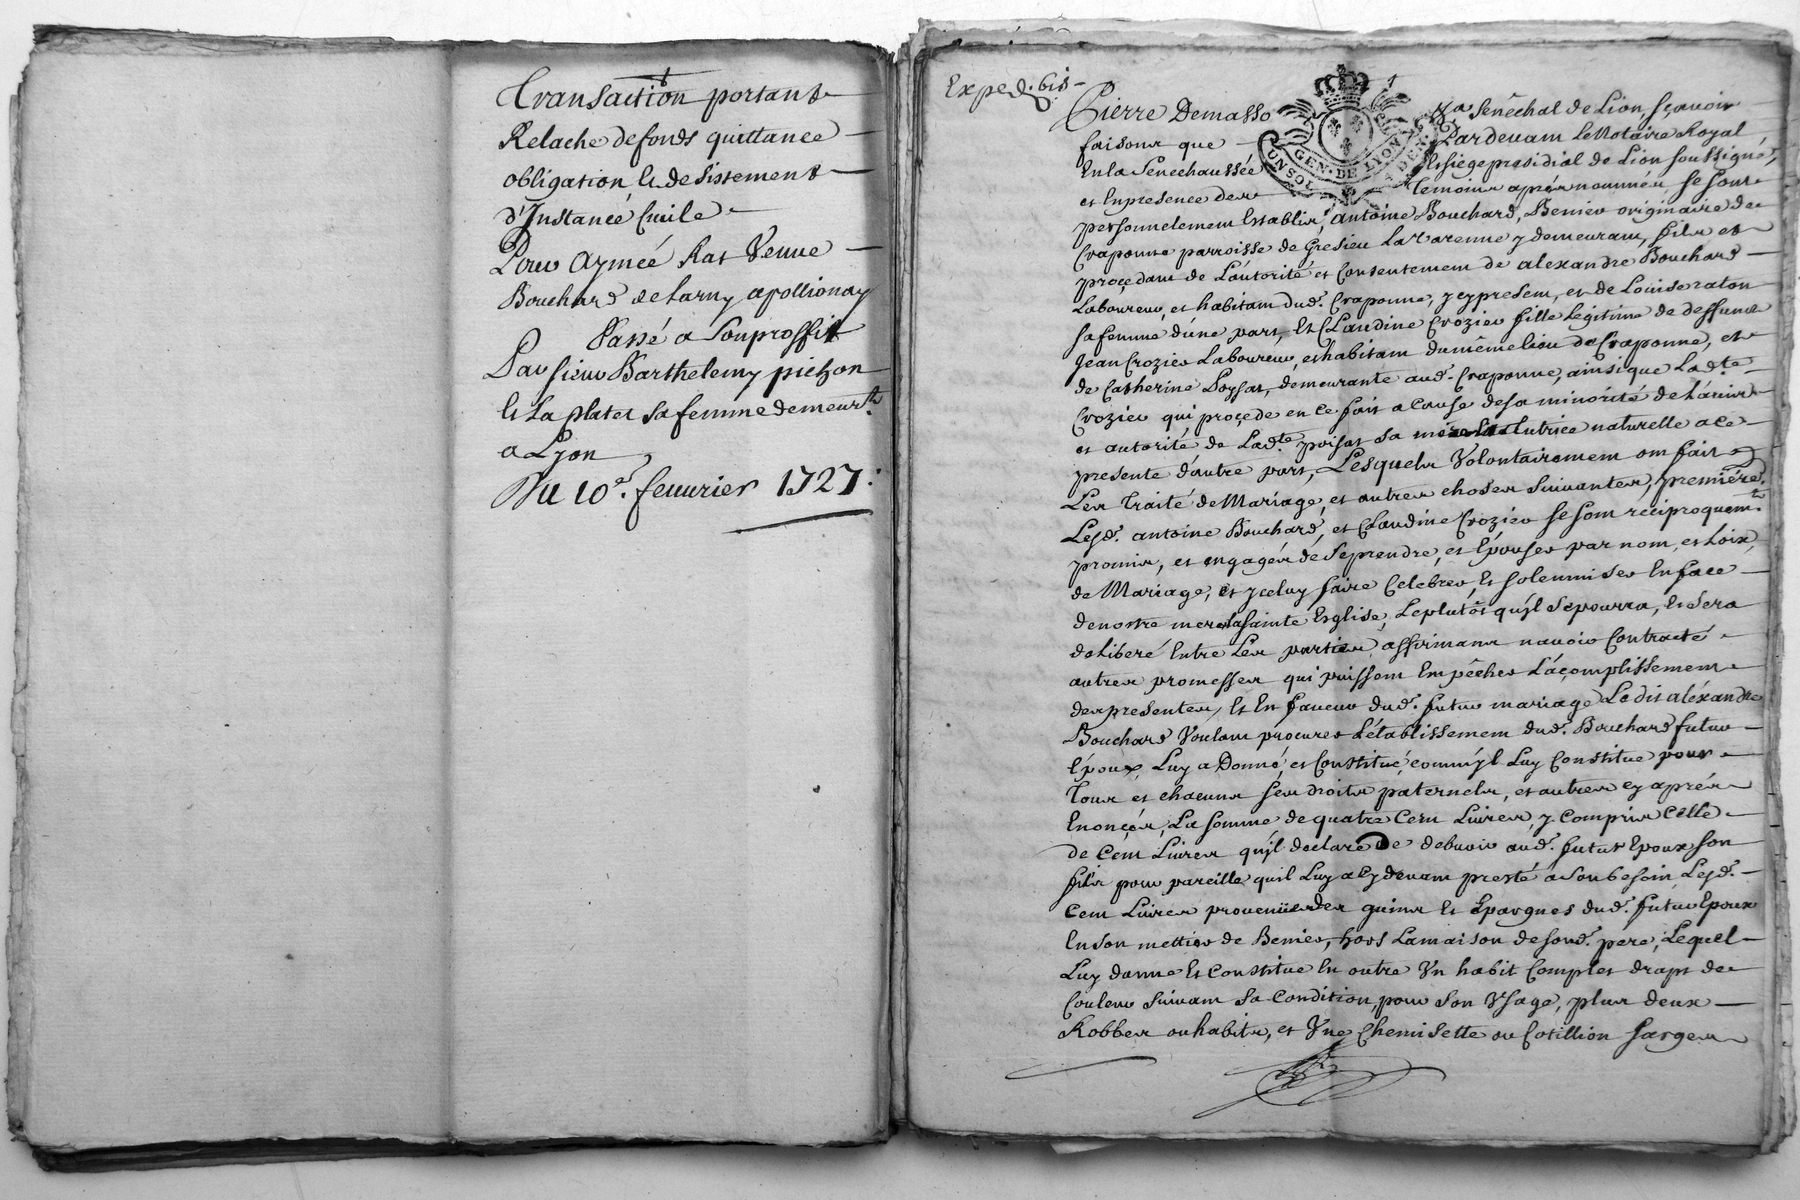 Transaction portant
Relache de fonds quittance
obligation et desistement
d'Instance Civile
Pour Aymée Rat Veuve
Bouchard de Larny apollionay
Passé a Son proffit
Par Sieur Barthelemy pichon
et La plates sa femme demeurts
a Lyon
Du 10e. feuurier 1727:
Exped. bis
Pierre Demasso
Sénéchal de Lion, sçavoir
faisons que
Pardevant le Notaire Royal
En la Senechaussée
et siege presidial de Lion soussigné,
et En presence des
temoins aprés nommés, se sont
GEN. DE LYON
personnellement establis, antoine Bouchard, Benier originaire de
Craponne parroisse de Gresieu La Varenne y demeurant, fils et
procedant de L'autorité et Consentement de alexandre Bouchard
Laboureur, et habitant dud. Craponne, y cy present, et de Louise raton
sa femme d'une part, Et Claudine Crozier fille Legitime de deffunt
Jean Crozier Laboureur, et habitant du même lieu de Craponne, et
de Catherine Poysat, demeurante aud. Craponne, ainsi que Ladte.
Crozier qui procede en ce fait a cause de sa minorité de L'avis
et autorité de Ladte. poisat sa mere tutrice naturelle a ce
presente d'autre part, Lesquels Volontairement ont fait
Les Traité de Mariage, et autres choses suivantes, premièremt.
Lesd. antoine Bouchard, et Claudine Crozier se sont reciproquemt.
promis, et engagés de se prendre, et Epouser par nom, et Loix,
de Mariage, et yceluy faire Celebrer, et solennniser En face
de nostre mere sainte Esglise, Le plutôt qu'yl se pourra, et sera
deliberé Entre Les parties, affirmans n'avoir Contracté
autres promesses qui puissent Empêcher L'açomplissement
des presentes, Et En faveur dud. futur mariage Le dit aléxandre
Bouchard Voulant procurer L'établissement dud. Bouchard futur
Epoux, Luy a Donné, et Constitué, comm'yl Luy Constitue pour
Tous et chacuns ses droits paternels, et autres cy aprés
Enonçés, La somme de quatre Cent Livres, y Compris Celle
de Cent Livres qu'yl déclare De debvoir aud. futur Epoux son
fils pour pareille qu'il Luy a Cy devant presté a son besoin, Lesd.
Cent Livres provenües des gains et Epargnes dud. futur Epoux
En son mettier de Benier, hors La maison de sond. pere, Lequel
Luy donne Et Constitue En outre Vn habit Complet draps de
Couleur suivant sa Condition, pour son Vsage, plus deux
Robbes ou habits, et Vne Chemisette ou Cotillion Sarges